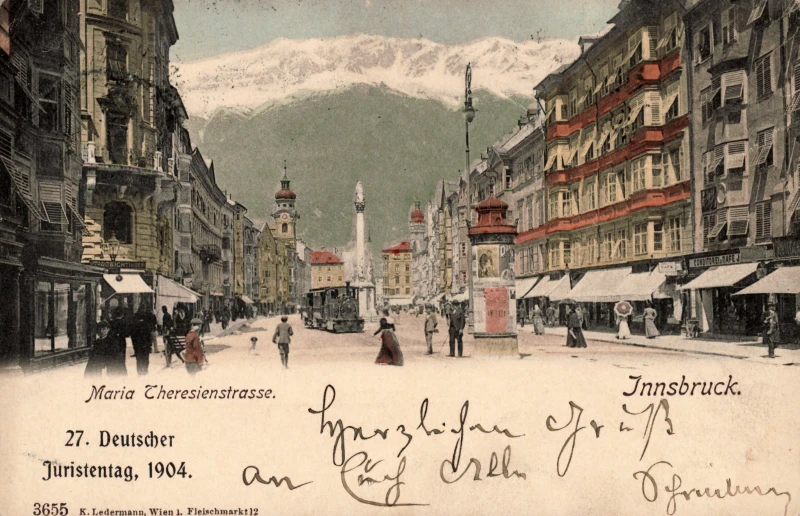 CONDITOREI & CAFÉ
Maria Theresienstrasse.
Innsbruck.
27. Deutscher
Juristentag, 1904.
Herzlichen Gruß
an Euch Alle
3655 K. Ledermann, Wien 1. Fleischmarkt 12